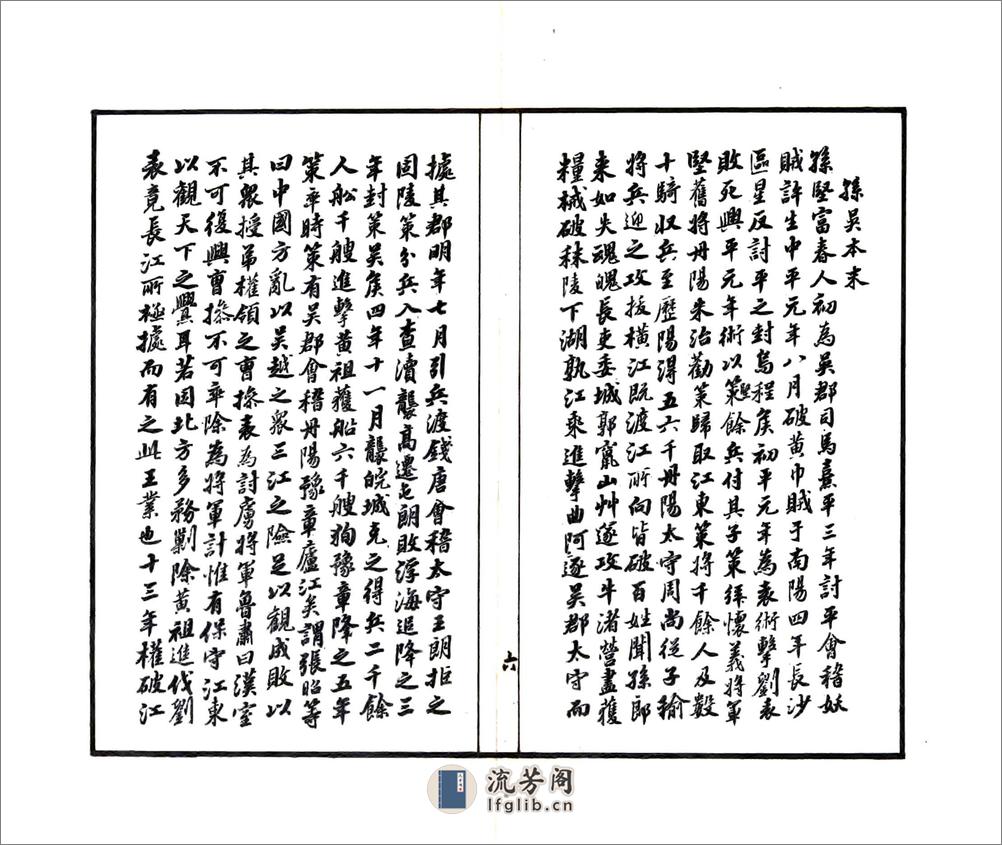 孫吳本末
孫堅富春人初為吳郡司馬熹平三年討平會稽妖
賊許生中平元年八月破黃巾賊于南陽四年長沙
區星反討平之封烏程矦初平元年為袁術擊劉表
敗死興平元年術以堅餘兵付其子策拜懷義將軍
堅舊將丹陽朱治勸策歸取江東策將千餘人及數
十騎收兵至歷陽得五六千丹陽太守周尚從子瑜
將兵迎之攻拔橫江既渡江所向皆破百姓聞孫郎
来如失魂魄長吏委城郭竄山艸遂攻牛渚營盡獲
糧械破秣陵下湖孰江乘進擊曲阿逐吳郡太守而
據其郡明年七月引兵渡錢唐會稽太守王朗拒之
固陵策分兵入查瀆襲高遷屯朗敗浮海追降之三
年封策吳矦四年十一月襲皖城克之得兵二千餘
人船千艘進擊黃祖獲船六千艘狥豫章降之五年
策卒時策有吳郡會稽丹陽豫章廬江矣謂張昭等
曰中國方亂以吳越之眾三江之險足以觀成敗以
其眾授弟權領之曹操表為討虜將軍魯肅曰漢室
不可復興曹操不可卒除為將軍計惟有保守江東
以觀天下之釁耳若因北方多務剿除黃祖進伐劉
表竟長江所極據而有之此王業也十三年權破江
六
流芳阁
lfglib.cn